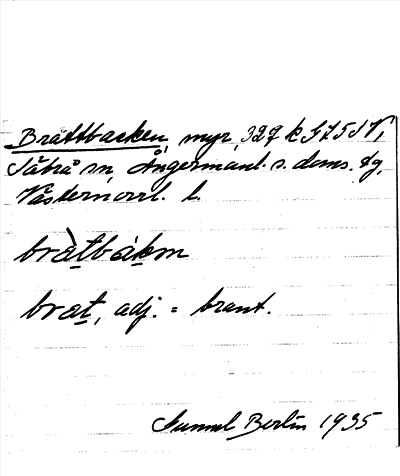 Brattbacken, myr, 327 k G 7 5 d V,
Säbrå sn, Ångermanl. s. doms. dg,
Västernorrl. L.
bràtbákm
brat, adj. = brant.
Gunnel Berlin 1935